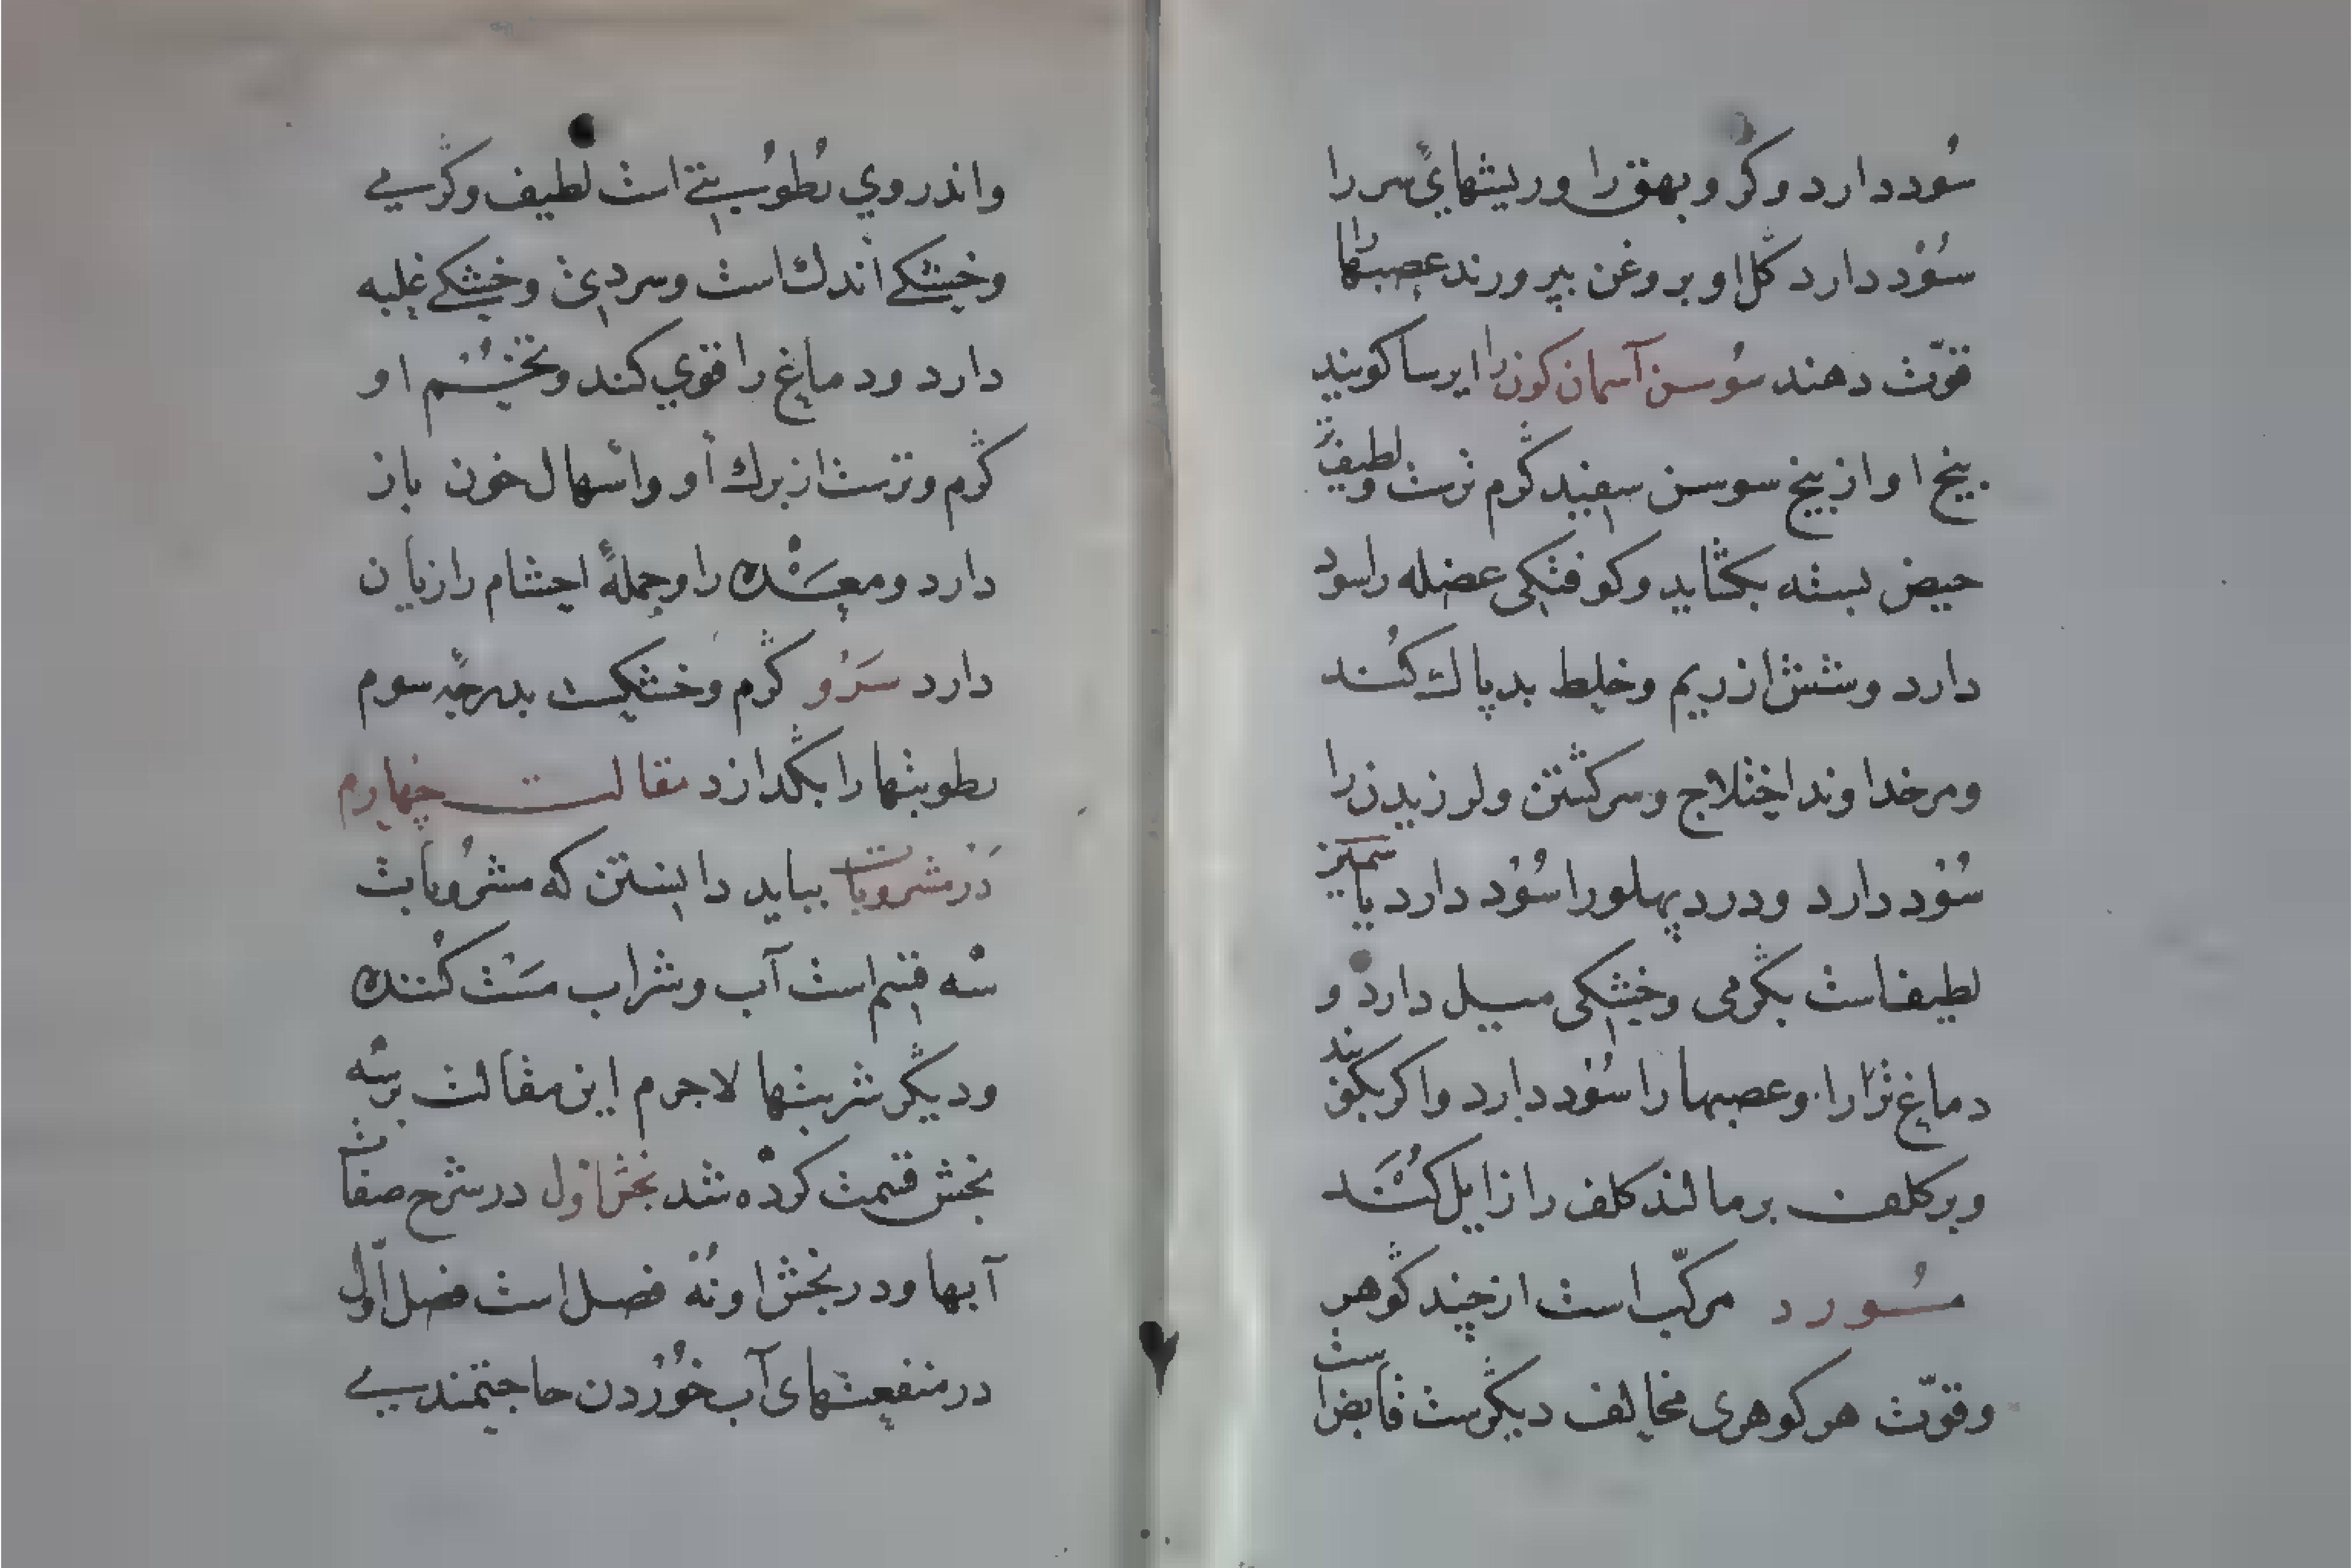 سُود دارد و کر و بهق را و ریشهایِ سر را
سُوْد دارد کل او بروغن بپرورند عصبها را
قوّت دهند سُوسن آسمان کون را ایرسا کویند
بیخ او از بیخ سوسن سپید کرم ترست و لطیف تر
حیض بسته بکشاید و کوفتکی عضله را سود
دارد و شش از ریم و خلط بد پاک کند
و مر خداوند اختلاج و سرکشتن و لرزیدن را
سُوْد دارد و درد پهلو را سُوْد دارد یاسمین
لطیف است بکرمی و خشکی میل دارد و
دماغ تر را و عصبها را سُوْد دارد و اکر بکوبند
و بر کلف بر مالند کلف را زایل کُنَند
مُورد مرکّب است از چند کوهر
و قوّت هر کوهری مخالف دیکرست قابض است
و اندر وی رُطوُبتی است لطیف و کرمیی
و خشکی اندک است و سردی و خشکی غلبه
دارد و دماغ را قوی کند و تخم او
کرم و ترست از برک او و اسهال خون باز
دارد و معده را و جملهٔ احشام را زیان
دارد سَرْو کرم و خشکست بدرجهٔ سوم
رطوبتها را بکدازد مقالت چهارم
دَر مشروبات بباید دانستن که مشروُبات
سه قسم است آب و شراب مَسْت کُننده
و دیکر شربتها لاجرم این مقالت بر سه
بخش قسمت کرده شد بخش اول در شرح صفات
آبها و در بخش او نُه فصل است فصل اوّل
در منفعتهای آب خوُردن حاجتمندیی